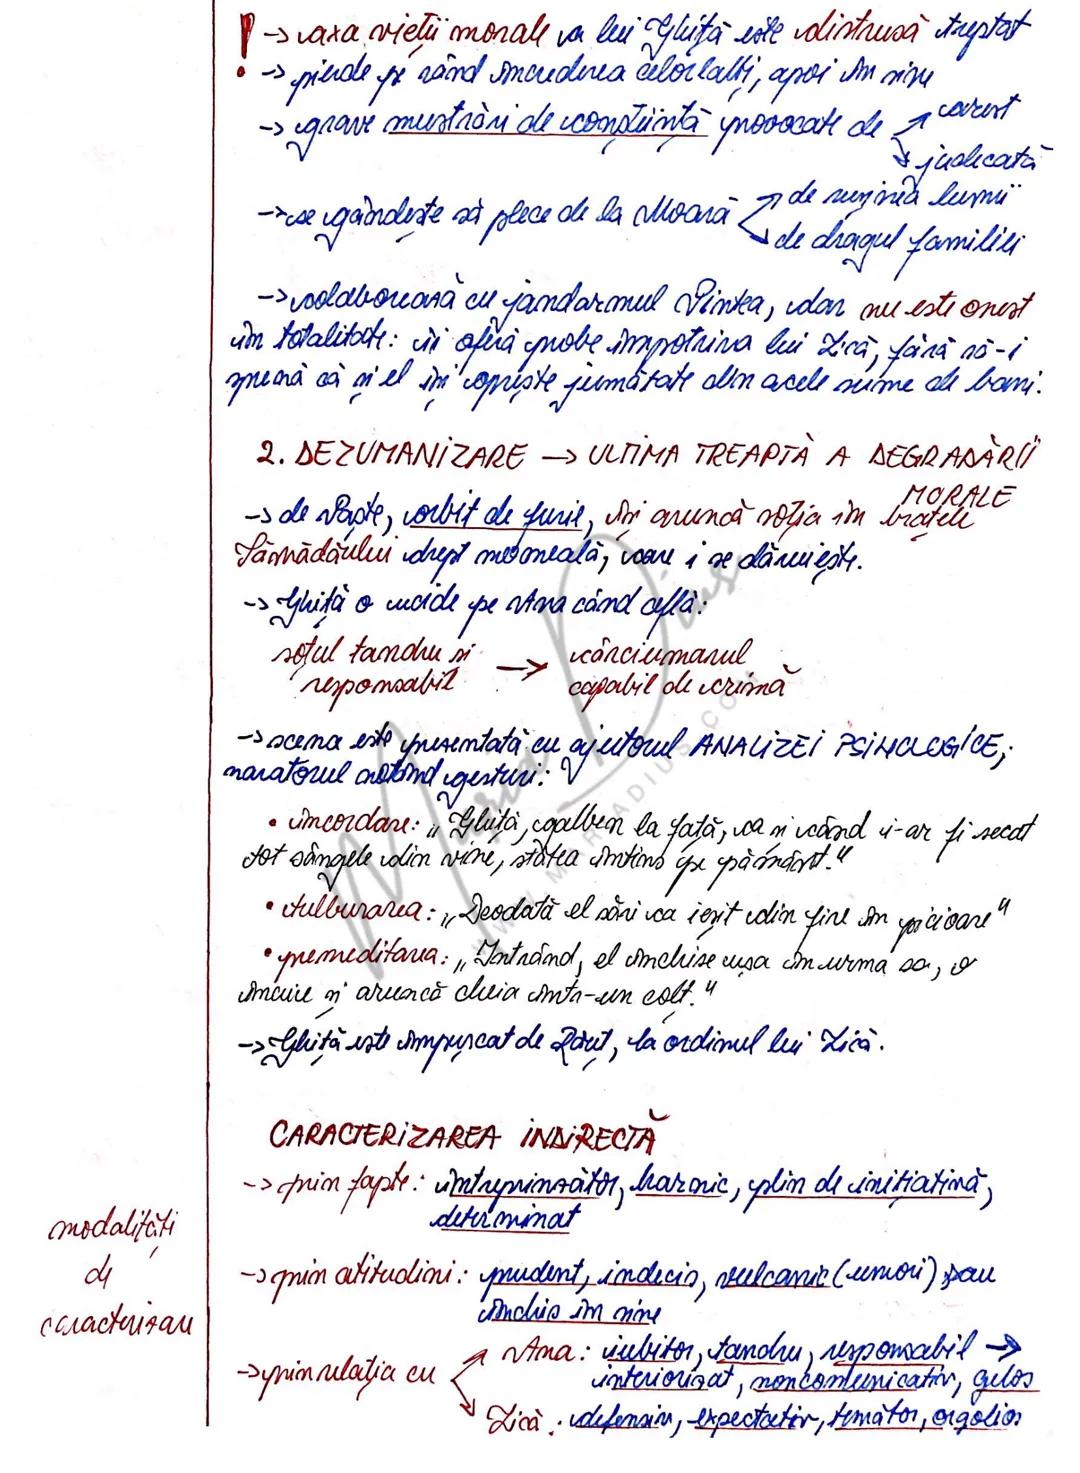 ! -> axa vieții morale a lui Ghiță este distrusă treptat
-> pierde pe rând încrederea celorlalți, apoi în sine
-> grave mustrări de conștiință provocate de ↗ arest
↘ judecată
-> se gândește să plece de la Moară ↗ de rușinea lumii
↘ de dragul familiei
-> colaborează cu jandarmul Pintea, dar nu este onest
în totalitate: îi oferă probe împotriva lui Lică, fără să-i
spună că și el își oprește jumătate din acele sume de bani.
2. DEZUMANIZARE -> ULTIMA TREAPTĂ A DEGRADĂRII
MORALE
-> de Paște, orbit de furie, își aruncă soția în brațele
Sămădăului drept momeală, care i se dăruiește.
-> Ghiță o ucide pe Ana când află:
soțul tandru și
responsabil -> cârciumarul
capabil de crimă
-> scena este prezentată cu ajutorul ANALIZEI PSIHOLOGICE,
naratorul notând gesturi:
• încordare: „Ghiță, galben la față, ca și când i-ar fi secat
tot sângele din vine, stătea întins pe pământ."
• tulburarea: „Deodată el sări ca ieșit din fire în picioare"
• premeditarea: „Intrând, el închise ușa în urma sa, o
încuie și aruncă cheia într-un colț."
-> Ghiță este împușcat de Răuț, la ordinul lui Lică.
CARACTERIZAREA INDIRECTĂ
-> prin fapte: întreprinzător, harnic, plin de inițiativă,
determinat
modalități
de
caracterizare
-> prin atitudini: prudent, indecis, vulcanic (umori) sau
închis în sine
-> prin relația cu ↗ Ana: iubitor, tandru, responsabil ->
interiorizat, noncomunicativ, gelos
↘ Lică: defensiv, expectativ, temător, orgolios
Maria Dius
WWW.MARIADIUS.COM